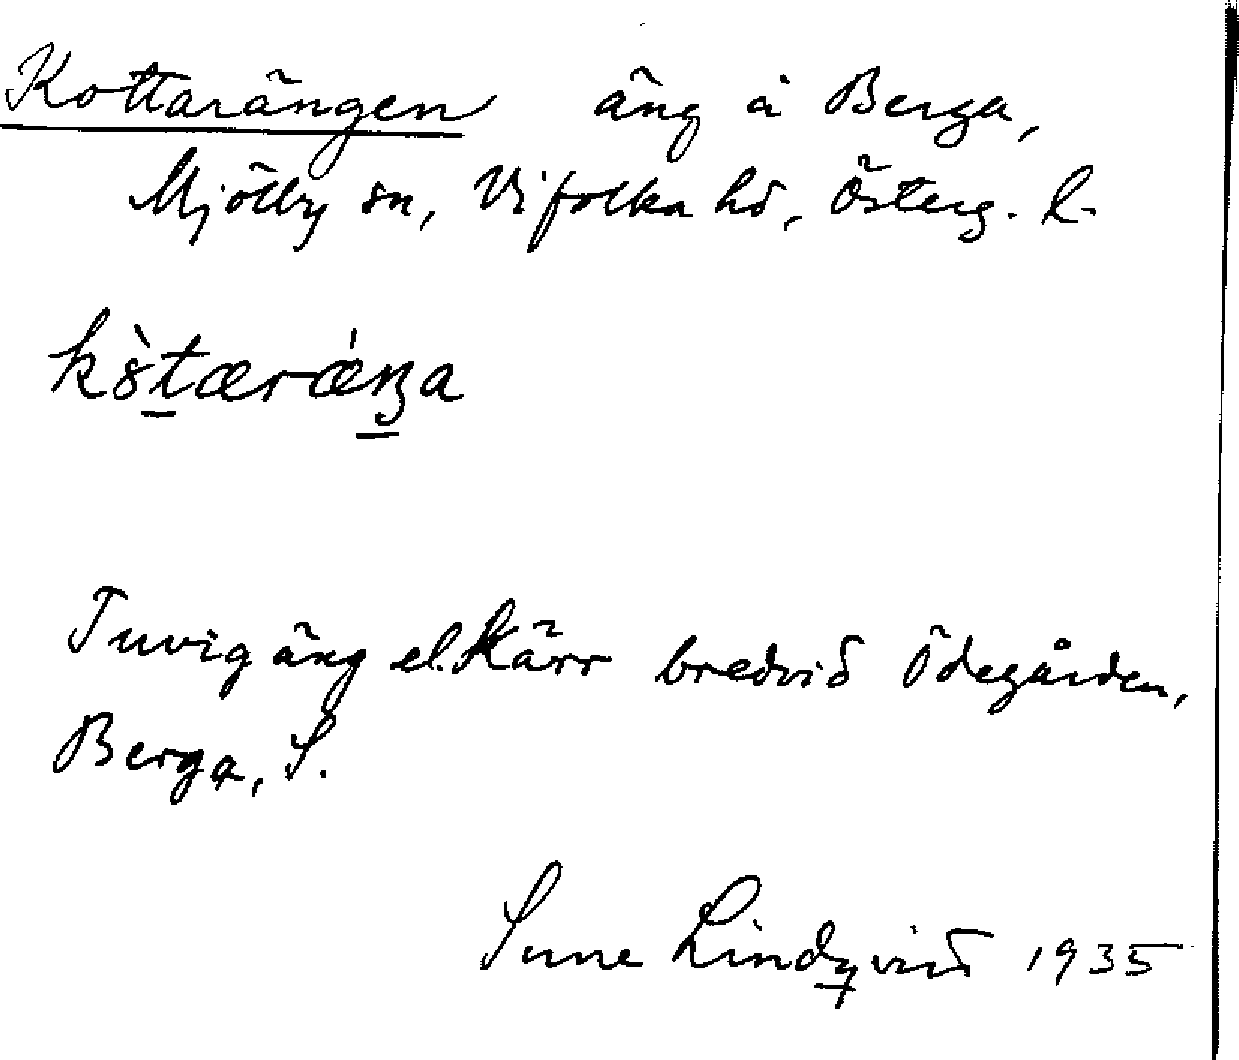 Kottarängen äng å Berga,
Mjölby sn, Vifolka hd, Österg. l.
kòtæræ̀ŋa
Tuvig äng el. kärr bredvid Ödegården,
Berga, S.
Sune Lindqvist 1935